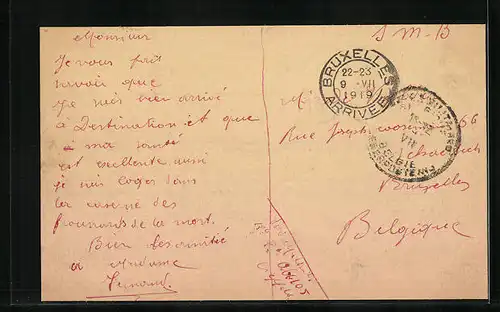 Monsieur
Je vous fait
savoir que
Je suis bien arrivé
à Destination et que
à ma santé
est excellente aussi
je suis loger dans
la caserne des
de la mort.
Bien des amitié
a Madame
Fernand
S M - B
BRUXELLES
22-23
9 - VII
1919
ARRIVEE
Rue Joseph 66
Bruxelles
Belgique